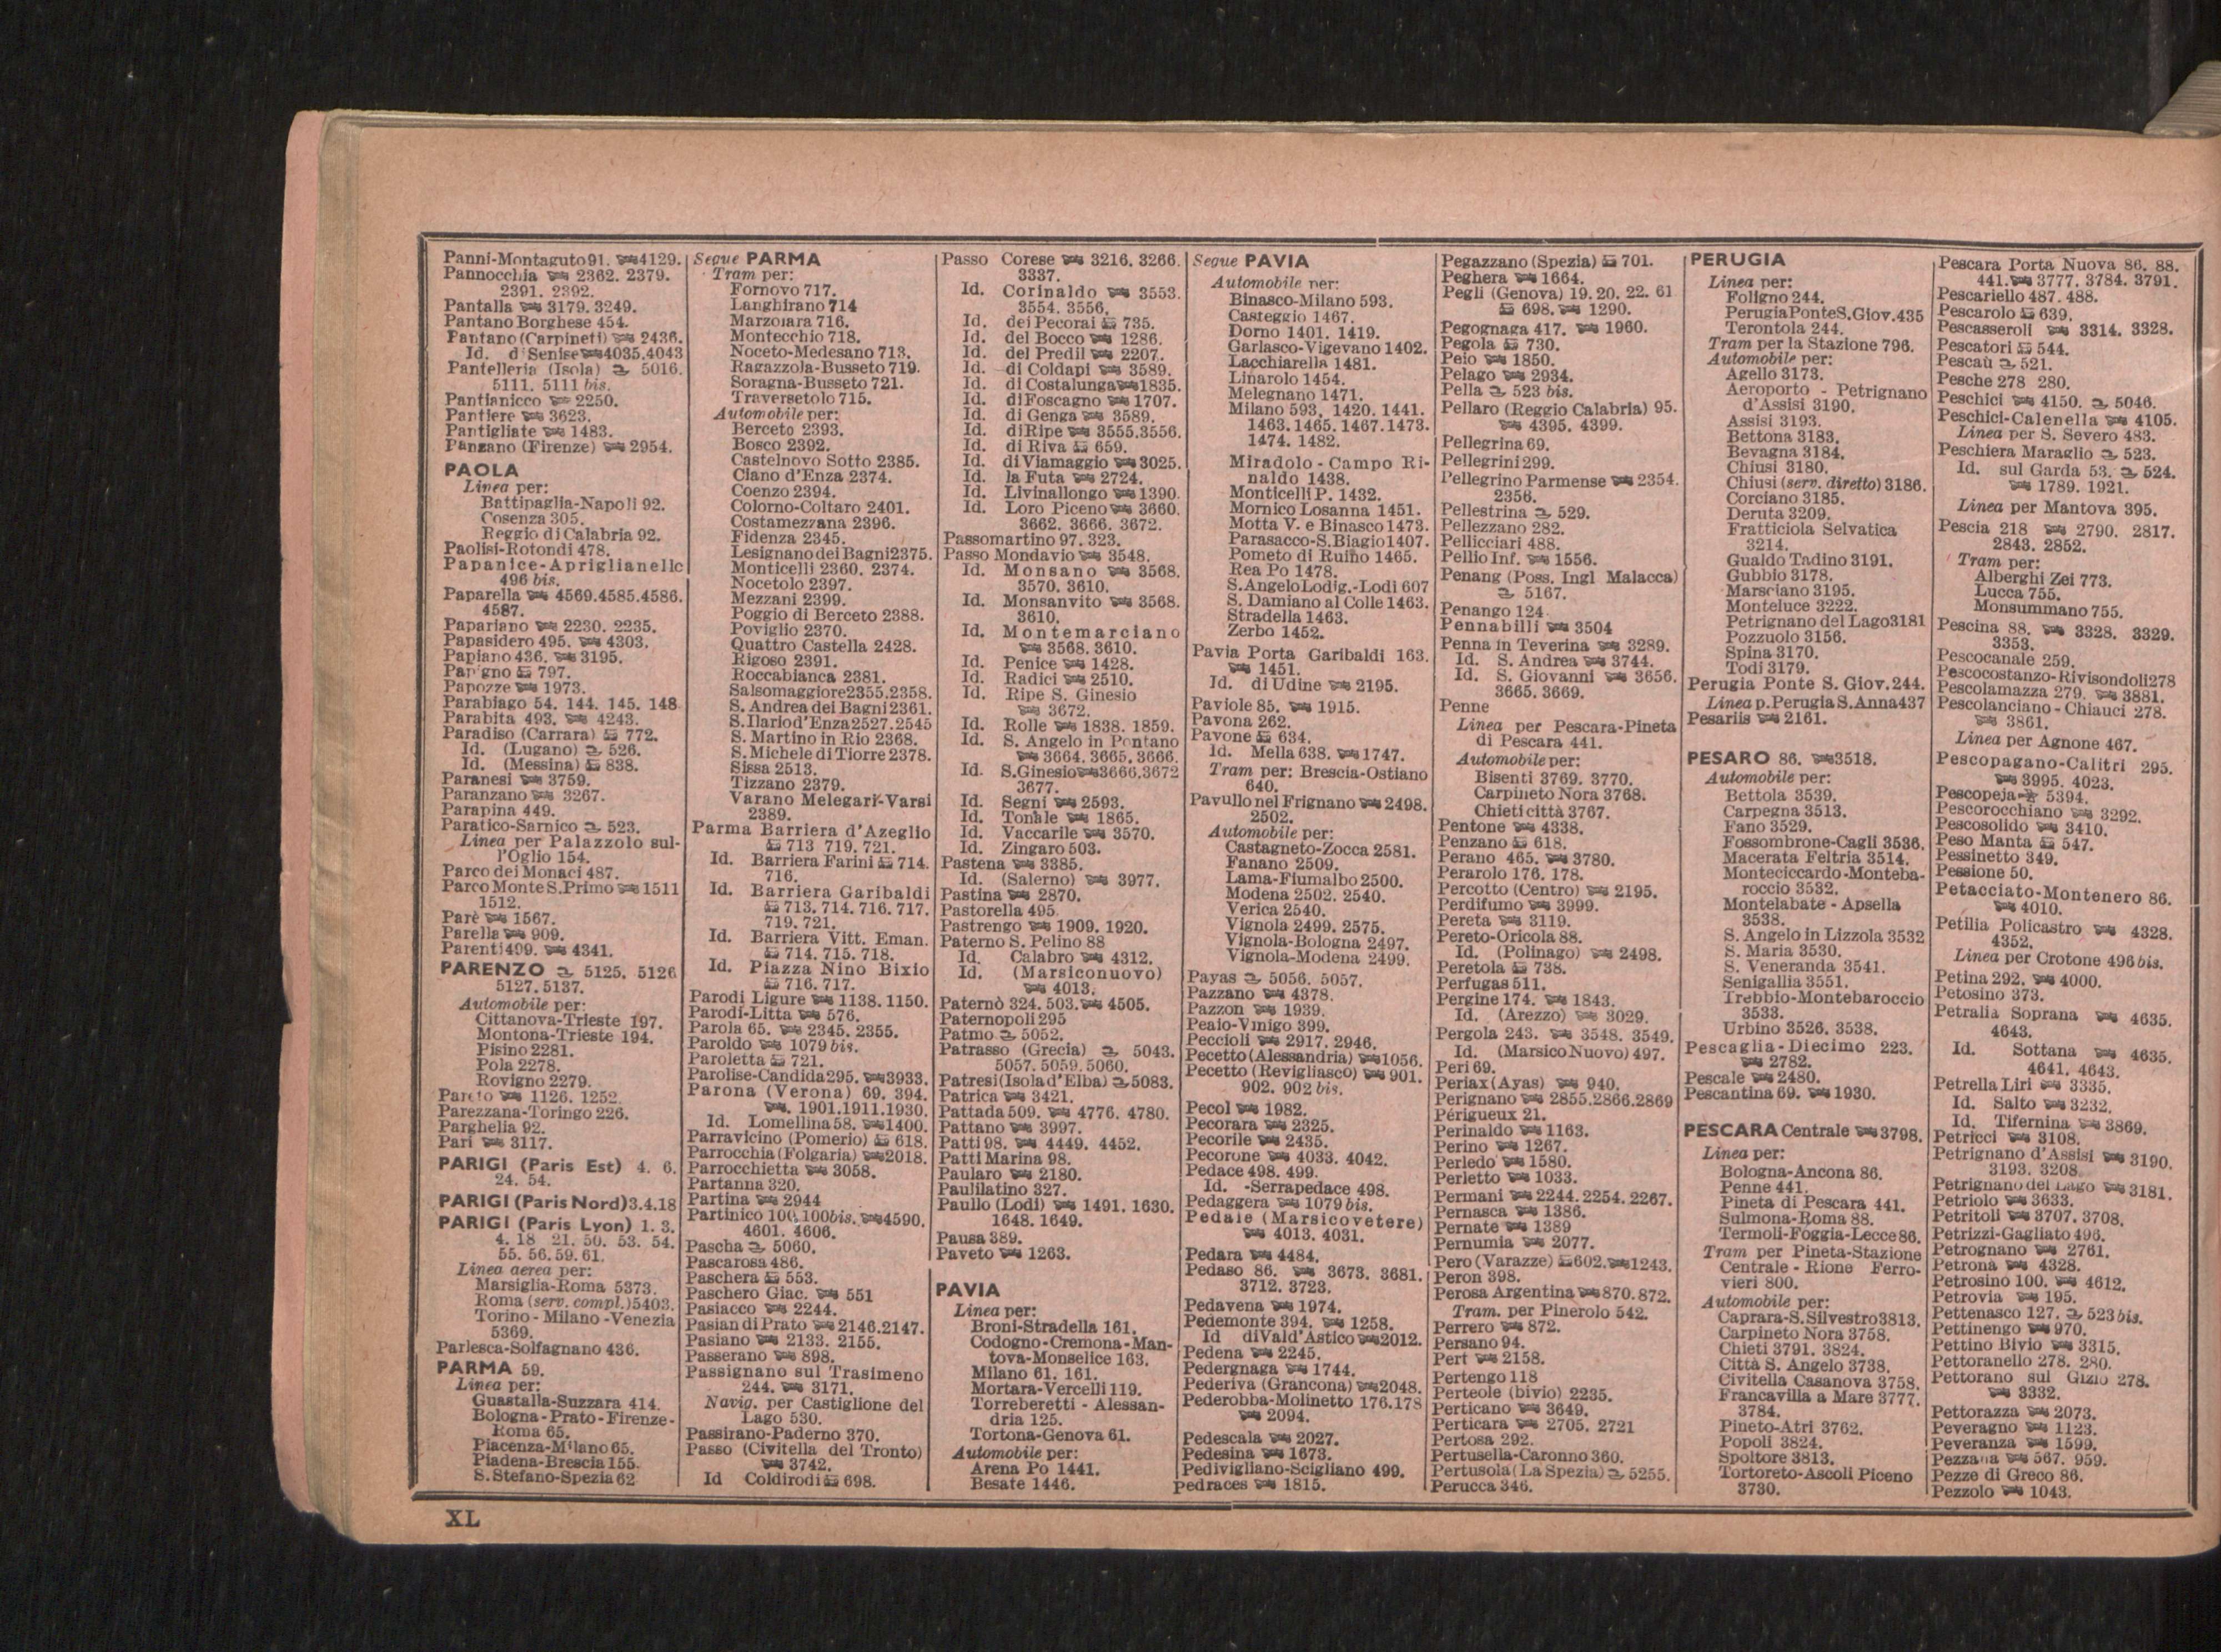 Panni-Montaguto 91. 4129.
Pannocchia 2362. 2379.
2391. 2392.
Pantalla 3179. 3249.
Pantano Borghese 454.
Pantano (Carpineti) 2436.
Id. d'Senise 4035.4043
Pantelleria (Isola) 5016.
5111. 5111 bis.
Pantianicco 2250.
Pantiere 3623.
Pantigliate 1483.
Panzano (Firenze) 2954.
PAOLA
Linea per:
Battipaglia-Napoli 92.
Cosenza 305.
Reggio di Calabria 92.
Paolisi-Rotondi 478.
Papanice-Apriglianello
496 bis.
Paparella 4569.4585.4586.
4587.
Papariano 2230. 2235.
Papasidero 495. 4303.
Papiano 436. 3195.
Papigno 797.
Papozze 1973.
Parabiago 54. 144. 145. 148
Parabita 493. 4243.
Paradiso (Carrara) 772.
Id. (Lugano) 526.
Id. (Messina) 838.
Paranesi 3759.
Paranzano 3267.
Parapina 449.
Paratico-Sarnico 523.
Linea per Palazzolo sul-
l'Oglio 154.
Parco dei Monaci 487.
Parco Monte S.Primo 1511
1512.
Parè 1567.
Parella 909.
Parenti 499. 4341.
PARENZO 5125. 5126
5127. 5137.
Automobile per:
Cittanova-Trieste 197.
Montona-Trieste 194.
Pisino 2281.
Pola 2278.
Rovigno 2279.
Pareto 1126. 1252.
Parezzana-Toringo 226.
Parghelia 92.
Pari 3117.
PARIGI (Paris Est) 4. 6.
24. 54.
PARIGI (Paris Nord) 3.4.18
PARIGI (Paris Lyon) 1. 3.
4. 18 21. 50. 53. 54.
55. 56. 59. 61.
Linea aerea per:
Marsiglia-Roma 5373.
Roma (serv. compl.) 5403.
Torino-Milano-Venezia
5369.
Parlesca-Solfagnano 436.
PARMA 59.
Linea per:
Guastalla-Suzzara 414.
Bologna-Prato-Firenze-
Roma 65.
Piacenza-Milano 65.
Piadena-Brescia 155.
S.Stefano-Spezia 62
Segue PARMA
Tram per:
Fornovo 717.
Langhirano 714
Marzolara 716.
Montecchio 718.
Noceto-Medesano 713.
Ragazzola-Busseto 719.
Soragna-Busseto 721.
Traversetolo 715.
Automobile per:
Berceto 2393.
Bosco 2392.
Castelnovo Sotto 2385.
Ciano d'Enza 2374.
Coenzo 2394.
Colorno-Coltaro 2401.
Costamezzana 2396.
Fidenza 2345.
Lesignano dei Bagni 2375.
Monticelli 2360. 2374.
Nocetolo 2397.
Mezzani 2399.
Poggio di Berceto 2388.
Poviglio 2370.
Quattro Castella 2428.
Rigoso 2391.
Roccabianca 2381.
Salsomaggiore 2355.2358.
S. Andrea dei Bagni 2361.
S. Ilario d'Enza 2527.2545
S. Martino in Rio 2368.
S. Michele di Tiorre 2378.
Sissa 2513.
Tizzano 2379.
Varano Melegari-Varsi
2389.
Parma Barriera d'Azeglio
713 719. 721.
Id. Barriera Farini 714.
716.
Id. Barriera Garibaldi
713. 714. 716. 717.
719. 721.
Id. Barriera Vitt. Eman.
714. 715. 718.
Id. Piazza Nino Bixio
716. 717.
Parodi Ligure 1138. 1150.
Parodi-Litta 576.
Parola 65. 2345. 2355.
Paroldo 1079 bis.
Paroletta 721.
Parolise-Candida 295. 3933.
Parona (Verona) 69. 394.
1901.1911.1930.
Id. Lomellina 58. 1400.
Parravicino (Pomerio) 618.
Parrocchia (Folgaria) 2018.
Parrocchietta 3058.
Partanna 320.
Partina 2944
Partinico 100.100 bis. 4590.
4601. 4606.
Pascha 5060.
Pascarosa 486.
Paschera 553.
Paschero Giac. 551
Pasiacco 2244.
Pasian di Prato 2146.2147.
Pasiano 2133. 2155.
Passerano 898.
Passignano sul Trasimeno
244. 3171.
Navig. per Castiglione del
Lago 530.
Passirano-Paderno 370.
Passo (Civitella del Tronto)
3742.
Id Coldirodi 698.
Passo Corese 3216. 3266.
3337.
Id. Corinaldo 3553.
3554. 3556.
Id. dei Pecorai 735.
Id. del Bocco 1286.
Id. del Predil 2207.
Id. di Coldapi 3589.
Id. di Costalunga 1835.
Id. di Foscagno 1707.
Id. di Genga 3589.
Id. di Ripe 3555.3556.
Id. di Riva 659.
Id. di Viamaggio 3025.
Id. la Futa 2724.
Id. Livinallongo 1390.
Id. Loro Piceno 3660.
3662. 3666. 3672.
Passomartino 97. 323.
Passo Mondavio 3548.
Id. Monsano 3568.
3570. 3610.
Id. Monsanvito 3568.
3610.
Id. Montemarciano
3568. 3610.
Id. Penice 1428.
Id. Radici 2510.
Id. Ripe S. Ginesio
3672.
Id. Rolle 1838. 1859.
Id. S. Angelo in Pontano
3664. 3665. 3666.
Id. S.Ginesio 3666.3672
3677.
Id. Segni 2593.
Id. Tonale 1865.
Id. Vaccarile 3570.
Id. Zingaro 503.
Pastena 3385.
Id. (Salerno) 3977.
Pastina 2870.
Pastorella 495.
Pastrengo 1909. 1920.
Paterno S. Pelino 88
Id. Calabro 4312.
Id. (Marsiconuovo)
4013.
Paternò 324. 503. 4505.
Paternopoli 295
Patmo 5052.
Patrasso (Grecia) 5043.
5057. 5059. 5060.
Patresi (Isola d'Elba) 5083.
Patrica 3421.
Pattada 509. 4776. 4780.
Pattano 3997.
Patti 98. 4449. 4452.
Patti Marina 98.
Paularo 2180.
Paulilatino 327.
Paullo (Lodi) 1491. 1630.
1648. 1649.
Pausa 389.
Paveto 1263.
PAVIA
Linea per:
Broni-Stradella 161.
Codogno-Cremona-Man-
tova-Monselice 163.
Milano 61. 161.
Mortara-Vercelli 119.
Torreberetti - Alessan-
dria 125.
Tortona-Genova 61.
Automobile per:
Arena Po 1441.
Besate 1446.
Segue PAVIA
Automobile per:
Binasco-Milano 593.
Casteggio 1467.
Dorno 1401. 1419.
Garlasco-Vigevano 1402.
Lacchiarella 1481.
Linarolo 1454.
Melegnano 1471.
Milano 593. 1420. 1441.
1463. 1465. 1467. 1473.
1474. 1482.
Miradolo - Campo Ri-
naldo 1438.
Monticelli P. 1432.
Mornico Losanna 1451.
Motta V. e Binasco 1473.
Parasacco-S.Biagio 1407.
Pometo di Ruino 1465.
Rea Po 1478.
S.Angelo Lodig.-Lodi 607
S. Damiano al Colle 1463.
Stradella 1463.
Zerbo 1452.
Pavia Porta Garibaldi 163.
1451.
Id. di Udine 2195.
Paviole 85. 1915.
Pavona 262.
Pavone 634.
Id. Mella 638. 1747.
Tram per: Brescia-Ostiano
640.
Pavullo nel Frignano 2498.
2502.
Automobile per:
Castagneto-Zocca 2581.
Fanano 2509.
Lama-Fiumalbo 2500.
Modena 2502. 2540.
Verica 2540.
Vignola 2499. 2575.
Vignola-Bologna 2497.
Vignola-Modena 2499.
Payas 5056. 5057.
Pazzano 4378.
Pazzon 1939.
Pealo-Vinigo 399.
Peccioli 2917. 2946.
Pecetto (Alessandria) 1056.
Pecetto (Revigliasco) 901.
902. 902 bis.
Pecol 1982.
Pecorara 2325.
Pecorile 2435.
Pecorone 4033. 4042.
Pedace 498. 499.
Id. -Serrapedace 498.
Pedaggera 1079 bis.
Pedale (Marsicovetere)
4013. 4031.
Pedara 4484.
Pedaso 86. 3673. 3681.
3712. 3723.
Pedavena 1974.
Pedemonte 394. 1258.
Id di Val d'Astico 2012.
Pedena 2245.
Pedergnaga 1744.
Pederiva (Grancona) 2048.
Pederobba-Molinetto 176.178
2094.
Pedescala 2027.
Pedesina 1673.
Pedivigliano-Scigliano 499.
Pedraces 1815.
Pegazzano (Spezia) 701.
Peghera 1664.
Pegli (Genova) 19. 20. 22. 61
698. 1290.
Pegognaga 417. 1960.
Pegola 730.
Peio 1850.
Pelago 2934.
Pella 523 bis.
Pellaro (Reggio Calabria) 95.
4395. 4399.
Pellegrina 69.
Pellegrini 299.
Pellegrino Parmense 2354.
2356.
Pellestrina 529.
Pellezzano 282.
Pellicciari 488.
Pellio Inf. 1556.
Penang (Poss. Ingl Malacca)
5167.
Penango 124
Pennabilli 3504
Penna in Teverina 3289.
Id. S. Andrea 3744.
Id. S. Giovanni 3656.
3665. 3669.
Penne
Linea per Pescara-Pineta
di Pescara 441.
Automobile per:
Bisenti 3769. 3770.
Carpineto Nora 3768.
Chieti città 3767.
Pentone 4338.
Penzano 618.
Perano 465. 3780.
Perarolo 176. 178.
Percotto (Centro) 2195.
Perdifumo 3999.
Pereta 3119.
Pereto-Oricola 88.
Id. (Polinago) 2498.
Peretola 738.
Perfugas 511.
Pergine 174. 1843.
Id. (Arezzo) 3029.
Pergola 243. 3548. 3549.
Id. (Marsico Nuovo) 497.
Peri 69.
Periax (Ayas) 940.
Perignano 2855.2866.2869
Périgueux 21.
Perinaldo 1163.
Perino 1267.
Perledo 1580.
Perletto 1033.
Permani 2244. 2254. 2267.
Pernasca 1386.
Pernate 1389
Pernumia 2077.
Pero (Varazze) 602. 1243.
Peron 398.
Perosa Argentina 870.872.
Tram. per Pinerolo 542.
Perrero 872.
Persano 94.
Pert 2158.
Pertengo 118
Perteole (bivio) 2235.
Perticano 3649.
Perticara 2705. 2721
Pertosa 292.
Pertusella-Caronno 360.
Pertusola (La Spezia) 5255.
Perucca 346.
PERUGIA
Linea per:
Foligno 244.
Perugia Ponte S.Giov. 435
Terontola 244.
Tram per la Stazione 796.
Automobile per:
Agello 3173.
Aeroporto - Petrignano
d'Assisi 3190.
Assisi 3193.
Bettona 3183.
Bevagna 3184.
Chiusi 3180.
Chiusi (serv. diretto) 3186.
Corciano 3185.
Deruta 3209.
Fratticiola Selvatica
3214.
Gualdo Tadino 3191.
Gubbio 3178.
Marsciano 3195.
Monteluce 3222.
Petrignano del Lago 3181
Pozzuolo 3156.
Spina 3170.
Todi 3179.
Perugia Ponte S. Giov. 244.
Linea p. Perugia S.Anna 437
Pesariis 2161.
PESARO 86. 3518.
Automobile per:
Bettola 3539.
Carpegna 3513.
Fano 3529.
Fossombrone-Cagli 3536.
Macerata Feltria 3514.
Monteciccardo-Monteba-
roccio 3532.
Montelabate - Apsella
3538.
S. Angelo in Lizzola 3532
S. Maria 3530.
S. Veneranda 3541.
Senigallia 3551.
Trebbio-Montebaroccio
3533.
Urbino 3526. 3538.
Pescaglia-Diecimo 223.
2782.
Pescale 2480.
Pescantina 69. 1930.
PESCARA Centrale 3798.
Linea per:
Bologna-Ancona 86.
Penne 441.
Pineta di Pescara 441.
Sulmona-Roma 88.
Termoli-Foggia-Lecce 86.
Tram per Pineta-Stazione
Centrale - Rione Ferro-
vieri 800.
Automobile per:
Caprara-S.Silvestro 3813.
Carpineto Nora 3758.
Chieti 3791. 3824.
Città S. Angelo 3738.
Civitella Casanova 3758.
Francavilla a Mare 3777.
3784.
Pineto-Atri 3762.
Popoli 3824.
Spoltore 3813.
Tortoreto-Ascoli Piceno
3730.
Pescara Porta Nuova 86. 88.
441. 3777. 3784. 3791.
Pescariello 487. 488.
Pescarolo 639.
Pescasseroli 3314. 3328.
Pescatori 544.
Pescaù 521.
Pesche 278 280.
Peschici 4150. 5046.
Peschici-Calenella 4105.
Linea per S. Severo 483.
Peschiera Maraglio 523.
Id. sul Garda 53. 524.
1789. 1921.
Linea per Mantova 395.
Pescia 218 2790. 2817.
2843. 2852.
Tram per:
Alberghi Zei 773.
Lucca 755.
Monsummano 755.
Pescina 88. 3328. 3329.
3353.
Pescocanale 259.
Pescocostanzo-Rivisondoli 278
Pescolamazza 279. 3881.
Pescolanciano-Chiauci 278.
3861.
Linea per Agnone 467.
Pescopagano-Calitri 295.
3995. 4023.
Pescopeja 5394.
Pescorocchiano 3292.
Pescosolido 3410.
Peso Manta 547.
Pessinetto 349.
Pessione 50.
Petacciato-Montenero 86.
4010.
Petilia Policastro 4328.
4352.
Linea per Crotone 496 bis.
Petina 292. 4000.
Petosino 373.
Petralia Soprana 4635.
4643.
Id. Sottana 4635.
4641. 4643.
Petrella Liri 3335.
Id. Salto 3232.
Id. Tifernina 3869.
Petricci 3108.
Petrignano d'Assisi 3190.
3193. 3208.
Petrignano del Lago 3181.
Petriolo 3633.
Petritoli 3707. 3708.
Petrizzi-Gagliato 496.
Petrognano 2761.
Petrona 4328.
Petrosino 100. 4612.
Petrovia 195.
Pettenasco 127. 523 bis.
Pettinengo 970.
Pettino Bivio 3315.
Pettoranello 278. 280.
Pettorano sul Gizio 278.
3332.
Pettorazza 2073.
Peveragno 1123.
Peveranza 1599.
Pezzana 567. 959.
Pezze di Greco 86.
Pezzolo 1043.
XL